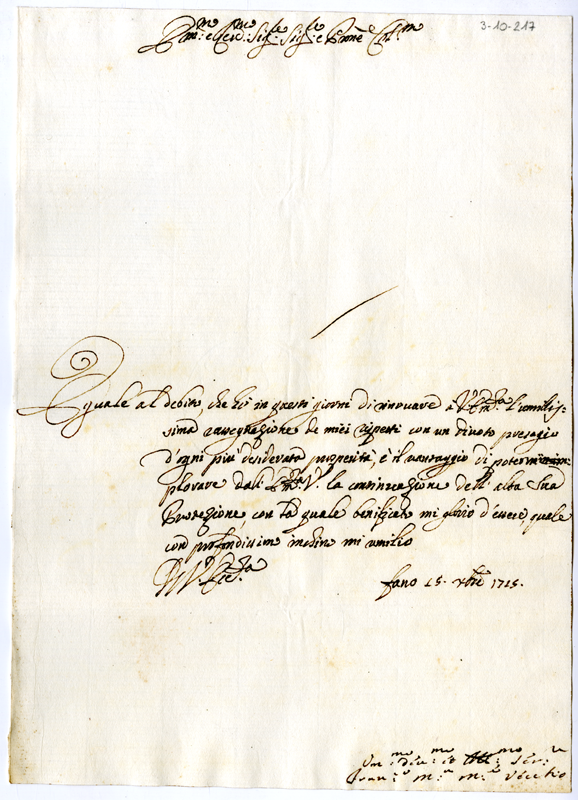 3-10-217
Em:mo e Rev:mo Sig:re Sig:re e Prone Col:mo
Eguale al debito, che hò in questi giorni di rinovare a V. Em:za l'umilis:
sima rassegnazione de miei rispetti con un divoto presagio
d'ogni più desiderata prosperità, è il vantaggio di poter
plorare dall' Em:za V. la continuazione dell' alta Sua
Protezione, con la quale benificato mi glorio d'essere, quale
con profondissimo inchino mi umilio
Di V. Em:za
fano 15. Xbre 1715.
Um:mo Div:mo et Obl:mo Ser:re
Fran:co M:a Vecchio